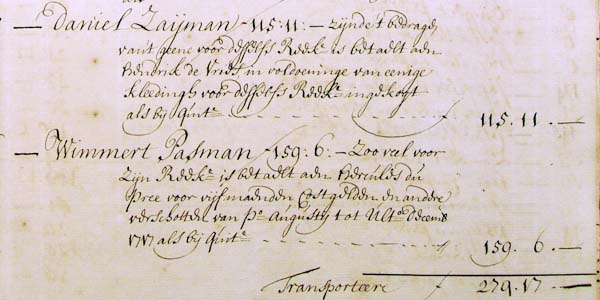 — Daniel Zaijman f 115:11:— zijnde't bedragen
van't geene voor desselfs Reekg. is betaelt aen
Hendrik de Vries, in voldoeninge van eenige
kleeding voor desselfs Reekg. ingekogt
als bij quite. - - - - - f 115.11.—
— Wimmert Pasman f 159:6:— Zoo veel voor
Zijn Reekg. is betaelt aen Hercules du
Pree voor vijf maenden Costgelden en andere
verschotten van Po. Augusty tot Ulto. Decemb
1717 als bij quite. - - - - - 159. 6.—
Transporteere f 279.17.—